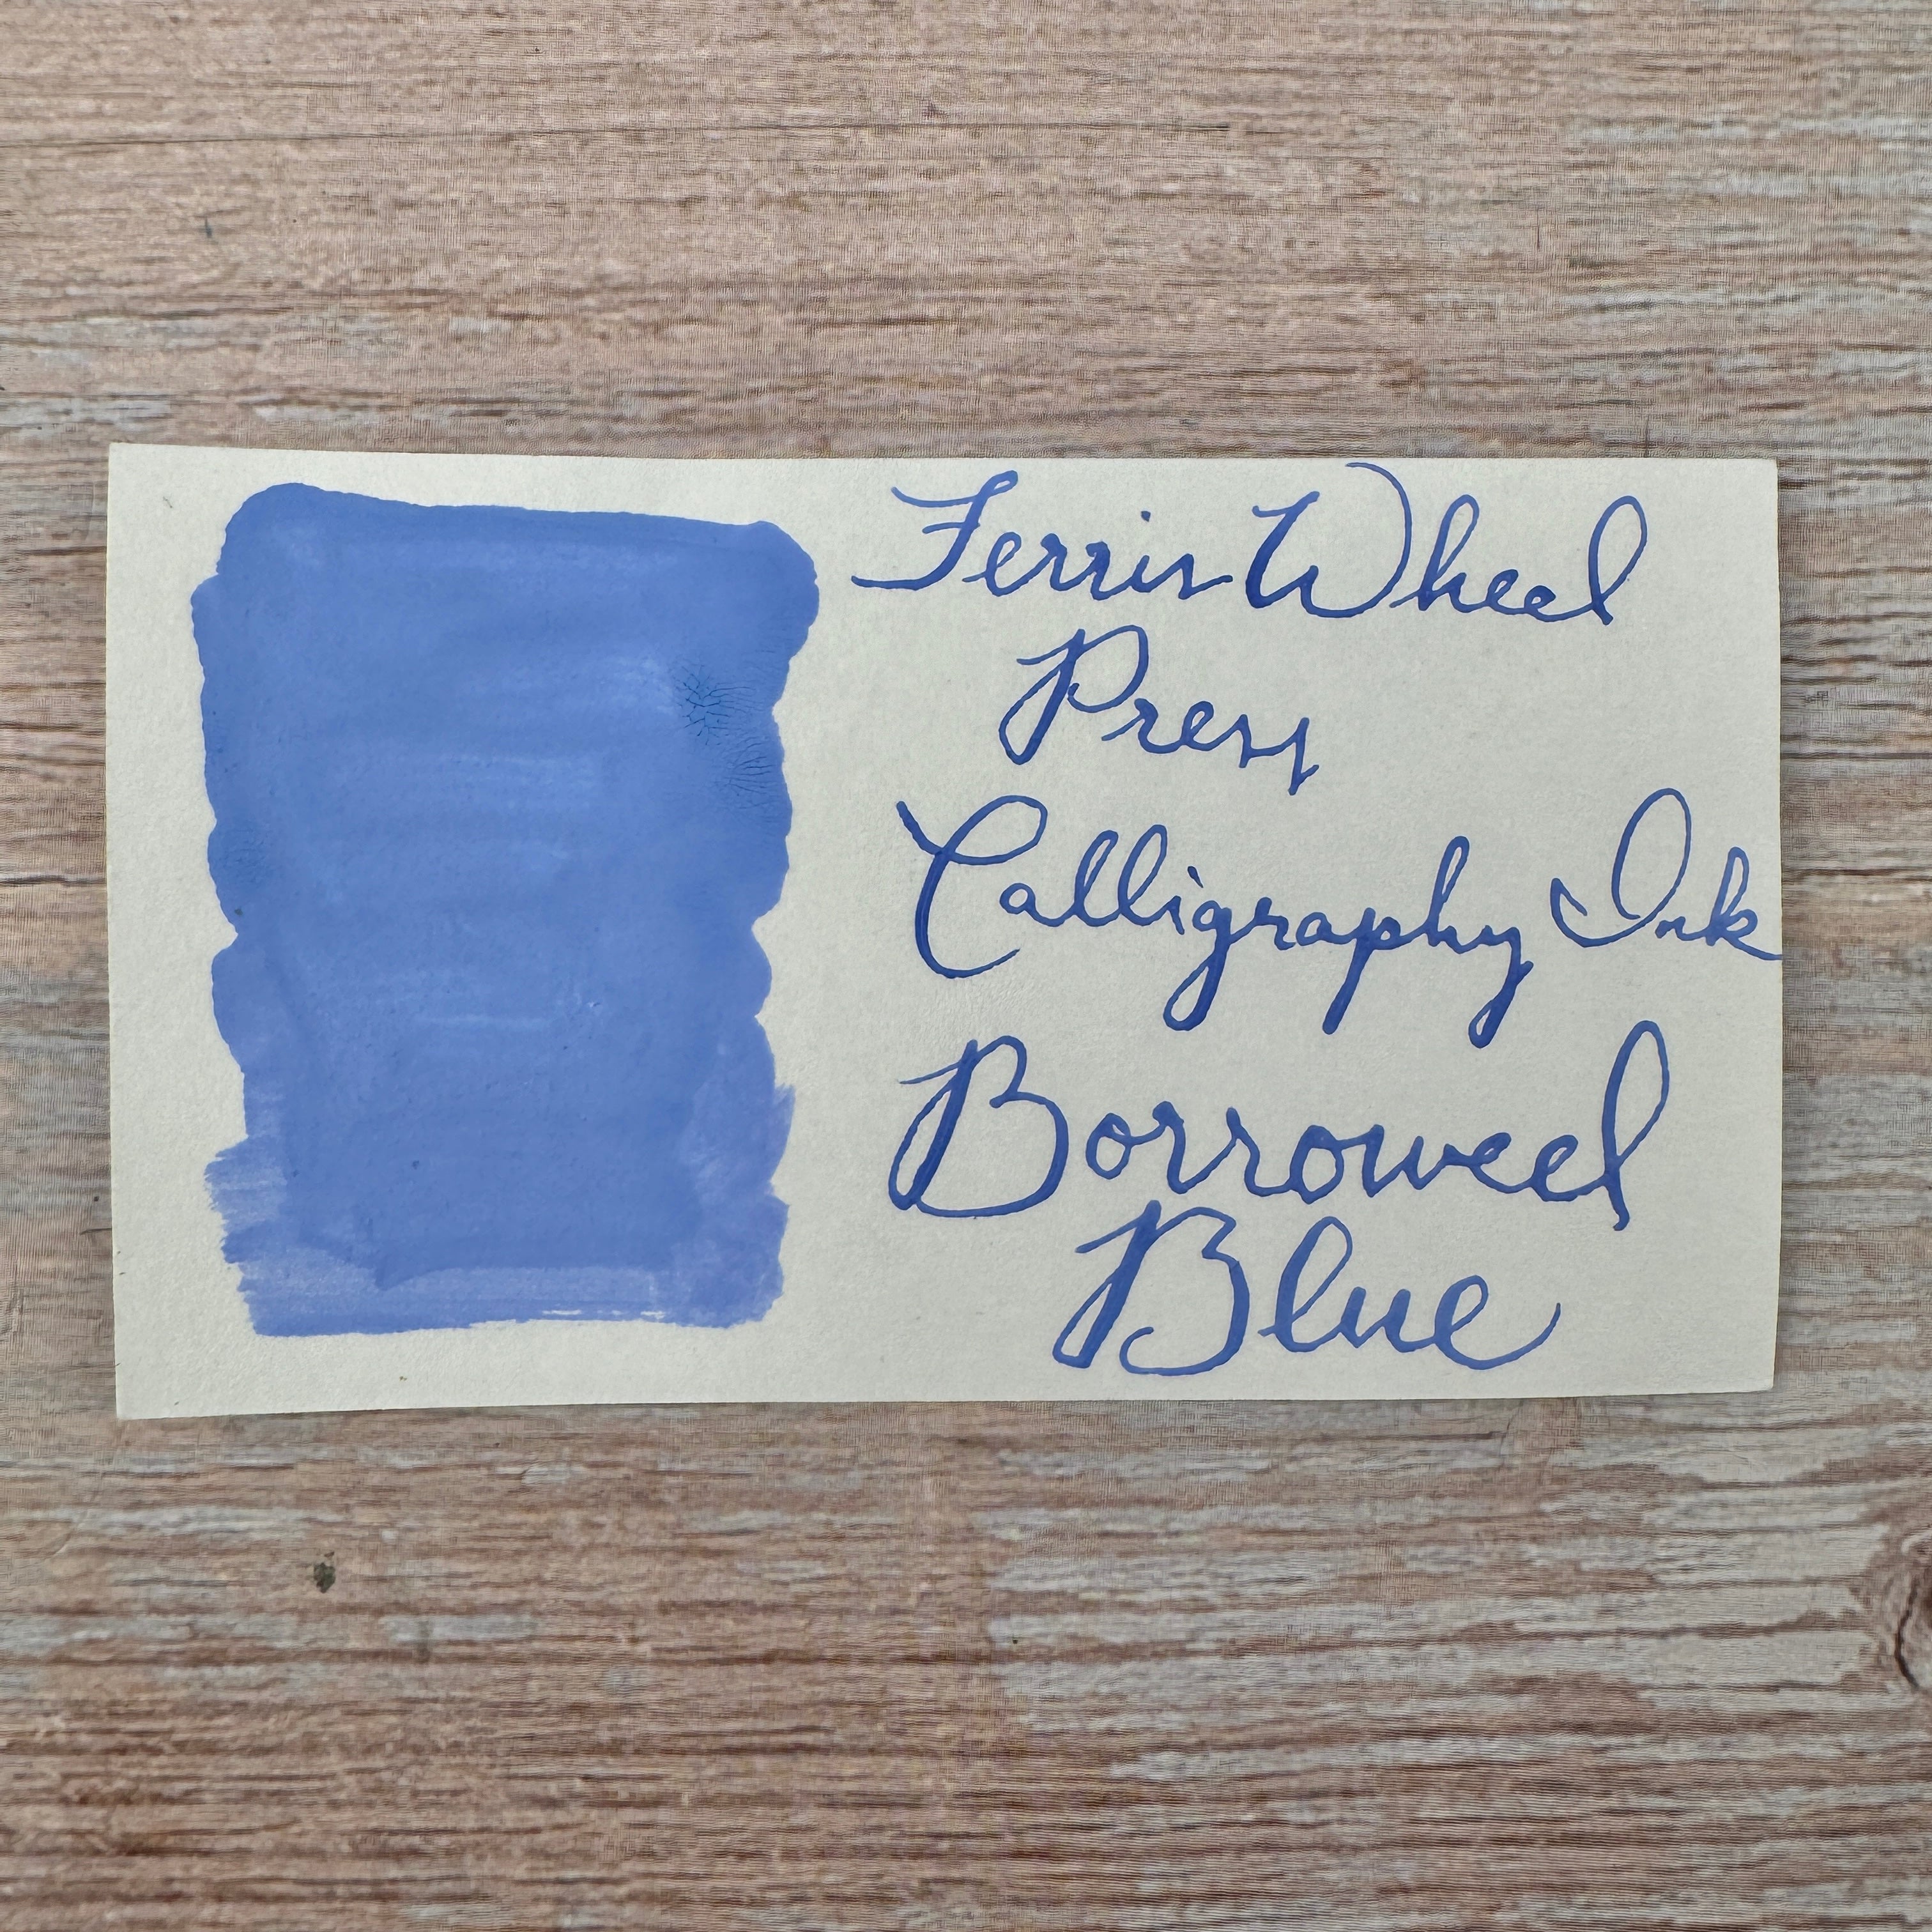 Ferris Wheel
Press
Calligraphy Ink
Borrowed
Blue